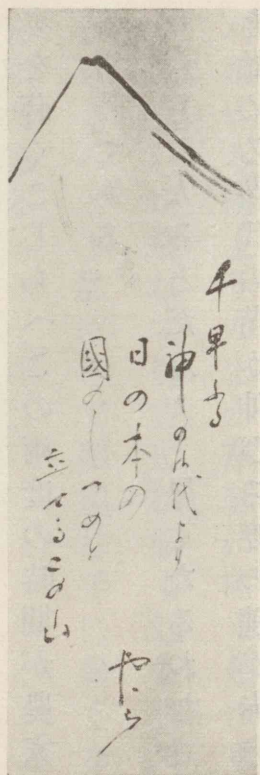 千早ふる
神の御代より
日の本の
國のしつめと
立てるこの山